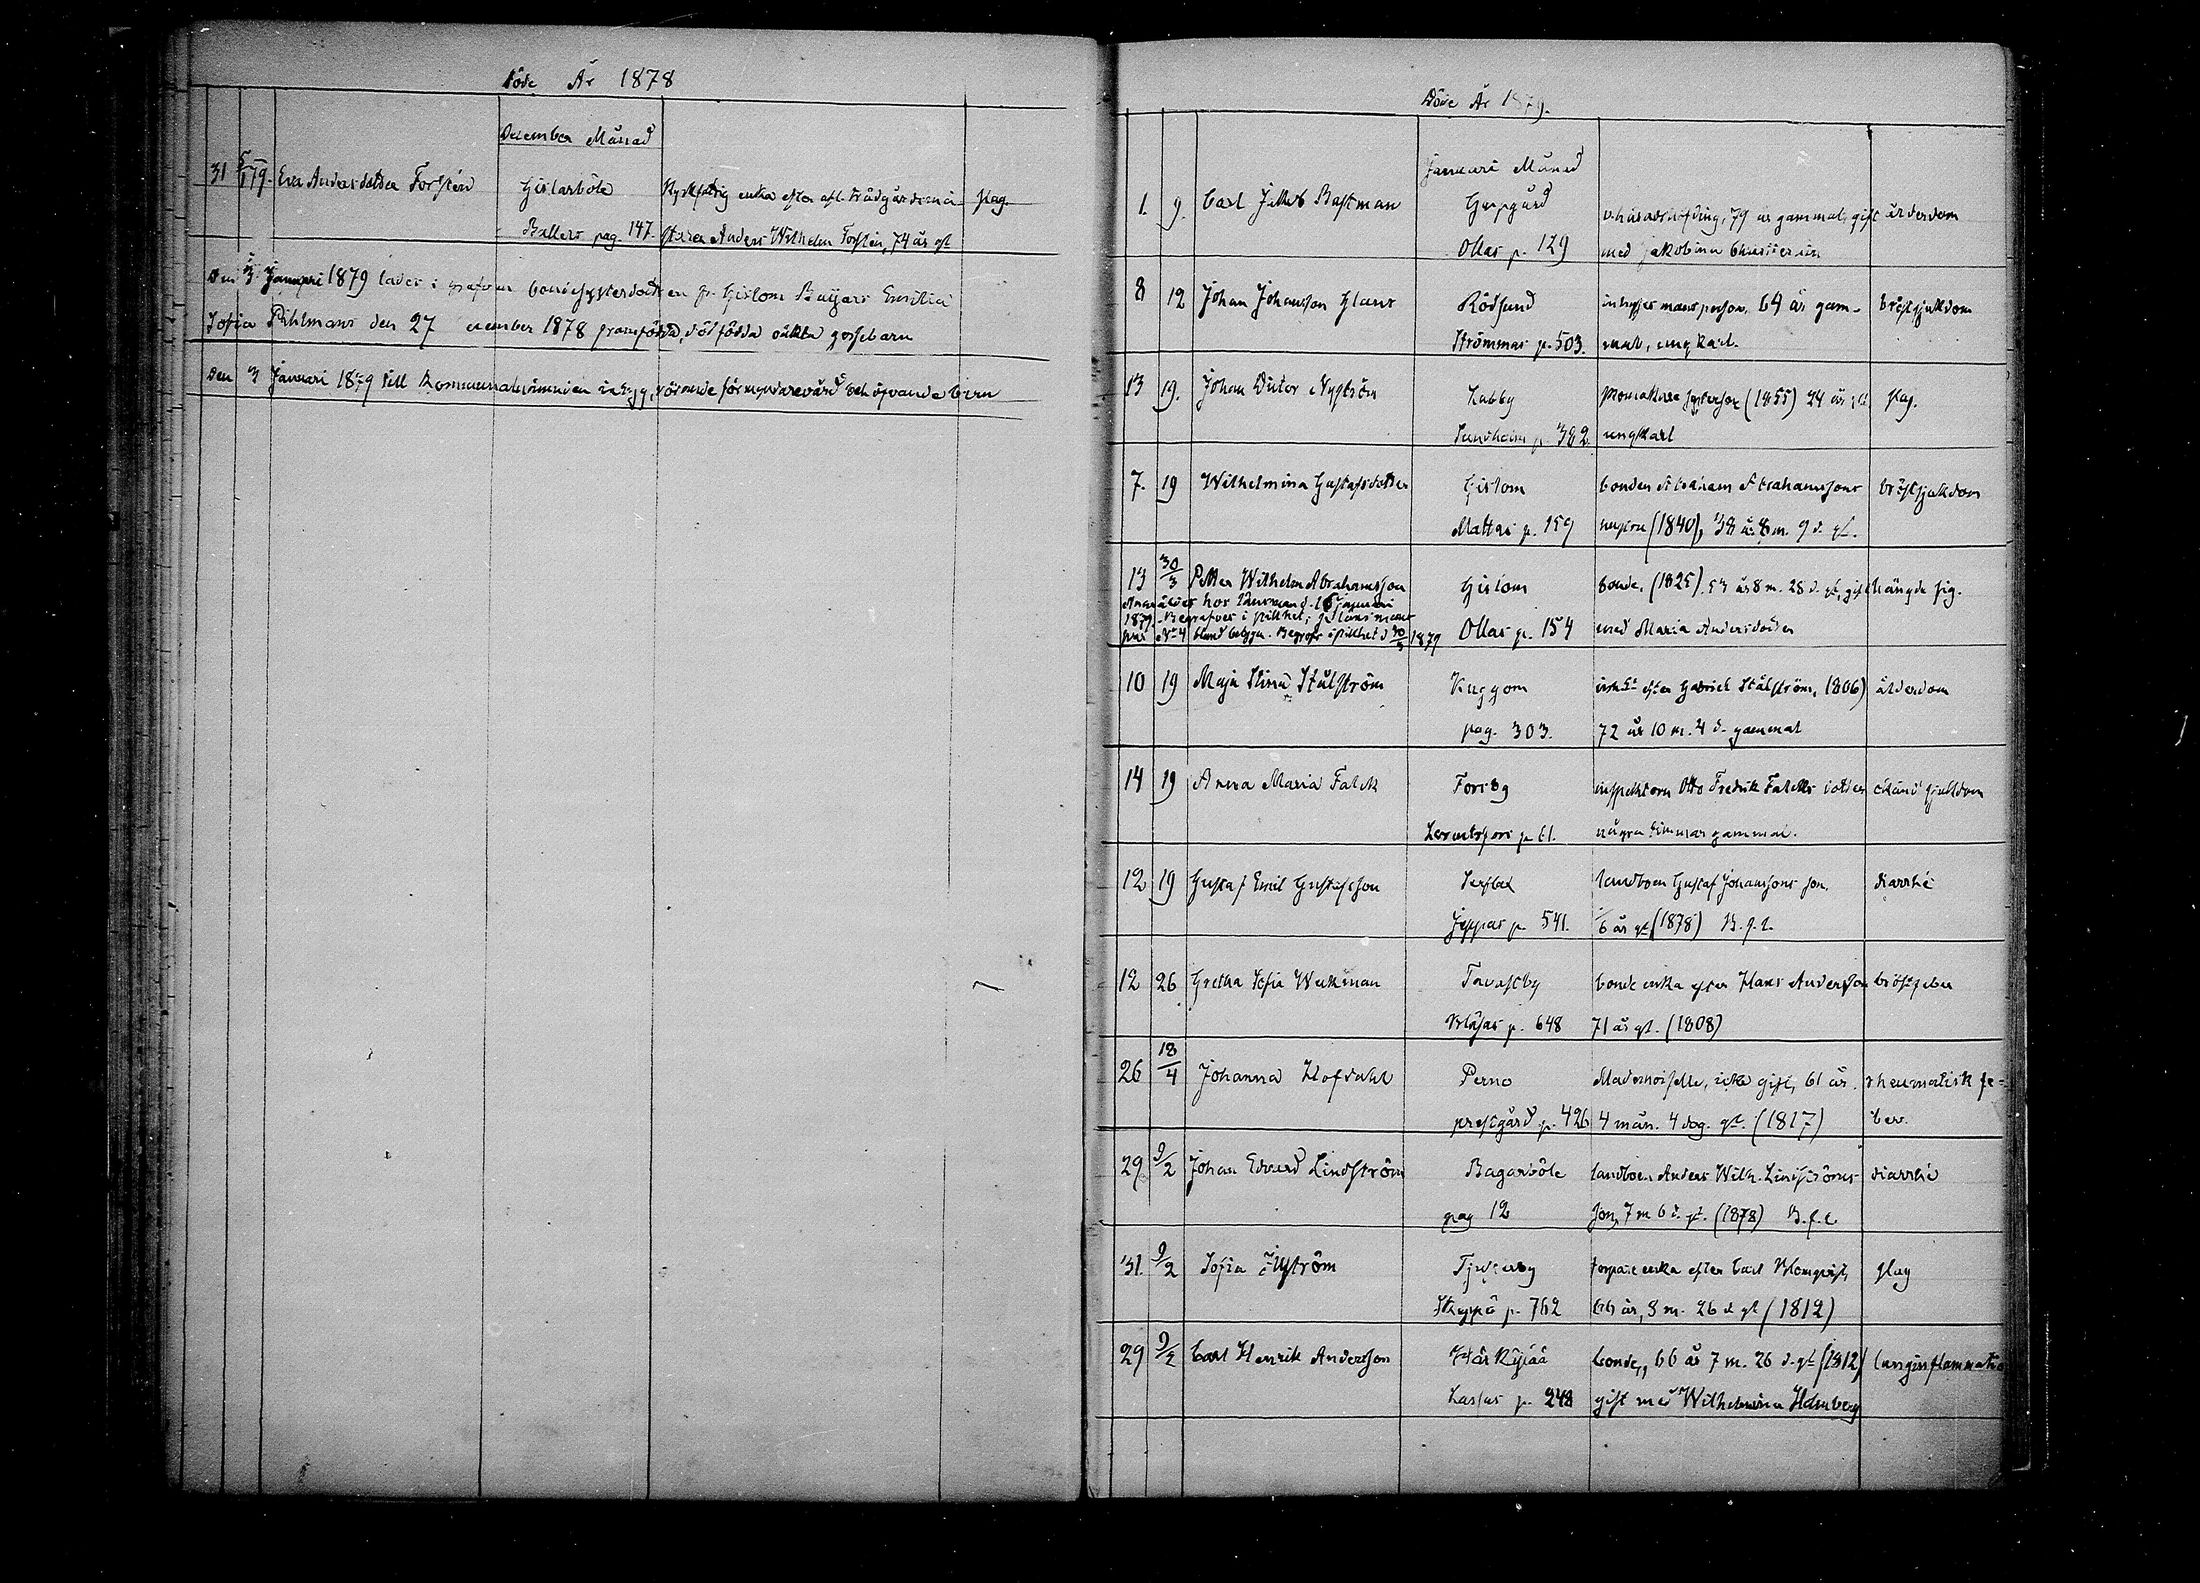 Döde År 1878
December Månad
31 5/1 79. Eva Andersdotter Forstén Gislarböle Kyrkfattig enka efter afl. trädgårdsmä- slag.
Ballers pag. 147. stare Anders Wilhelm Forstén, 74 år gl
Den 3 Januari 1879 lades i grafven bondedotteren fr. Gislom Emilia
Sofia Pihlmans den 27 december 1878 framfödda, dödfödda oäkta gossebarn
Den 3 Januari 1879 till Kommunalnämnden intyg, rörande förmyndarevård behöfvande barn
Döde År 1879.
Januari Månad
1. 9. Carl Jakob Bastman Greggård häradshöfding, 79 år gammal, gift ålderdom
Ollas p. 129 med Jakobina
8 12 Johan Johansson Glans Rödsund inhyses mansperson, 64 år gam- bröstsjukdom
Strömmas p. 503. mal, ungkarl.
13 19. Johan Victor Nyström Labby (1855) 24 år gl. slag.
Sundheim p. 382. ungkarl
7. 19 Wilhelmina Gustafsdotter Gislom bonden Abraham Abrahamssons bröstsjukdom
Mattas p. 159 hustru (1840), 38 år 8 m. 9 d. gl.
13 30/3 Petter Wilhelm Abrahamsson Gislom bonde, (1825). 53 år 8 m. 28 d. gl, gift hängde sig.
Anmäldes hos länsman d. 16 januari
1879. Begrafves i stillhet,
No 4 bland betygen. Begrofs i stillhet d 30/3 1879 Ollas p. 154 med Maria Andersdotter
10 19 Maja Stina Stålström Kuggom enka efter Gabriel Stålström, 1806) ålderdom
pag. 303. 72 år 10 m. 4 d. gammal
14 19 Anna Maria Falck Forsby inspektorn Otto Fredrik Falcks dotter okänd sjukdom
p 61. några timmar gammal.
12 19 Gustaf Emil Gustafsson Serflax landboen Gustaf Johanssons son, diarrhé
Jeppas p. 541. 1/6 år gl (1878)
12 26 Gretha Sofia Weckman Tavastby bonde enka efter Hans Andersson bröstfeber
Kläjas p. 648 71 år gl. (1808)
26 18/4 Johanna Hofdahl Perno Mademoiselle, icke gift, 61 år. rheumatisk fe-
prestgård p. 426 4 mån. 4 dag. gl. (1817) ber.
29 9/2 Johan Edvard Lindström Bagarböle landboen Anders Wilh. Lindströms diarrhé
pag 12 son, 7 m 6 d. gl. (1878)
31. 9/2 Sofia Tjusterby torpare enka efter Carl Blomqvist, slag
Skeppö p. 762 66 år, 8 m. 26 d gl (1812)
29 9/2 Carl Henrik Andersson Härkäpää bonde, 66 år 7 m. 26 d. gl (1812) lunginflammation
Lassas p. 248 gift med Wilhelmina Holmberg